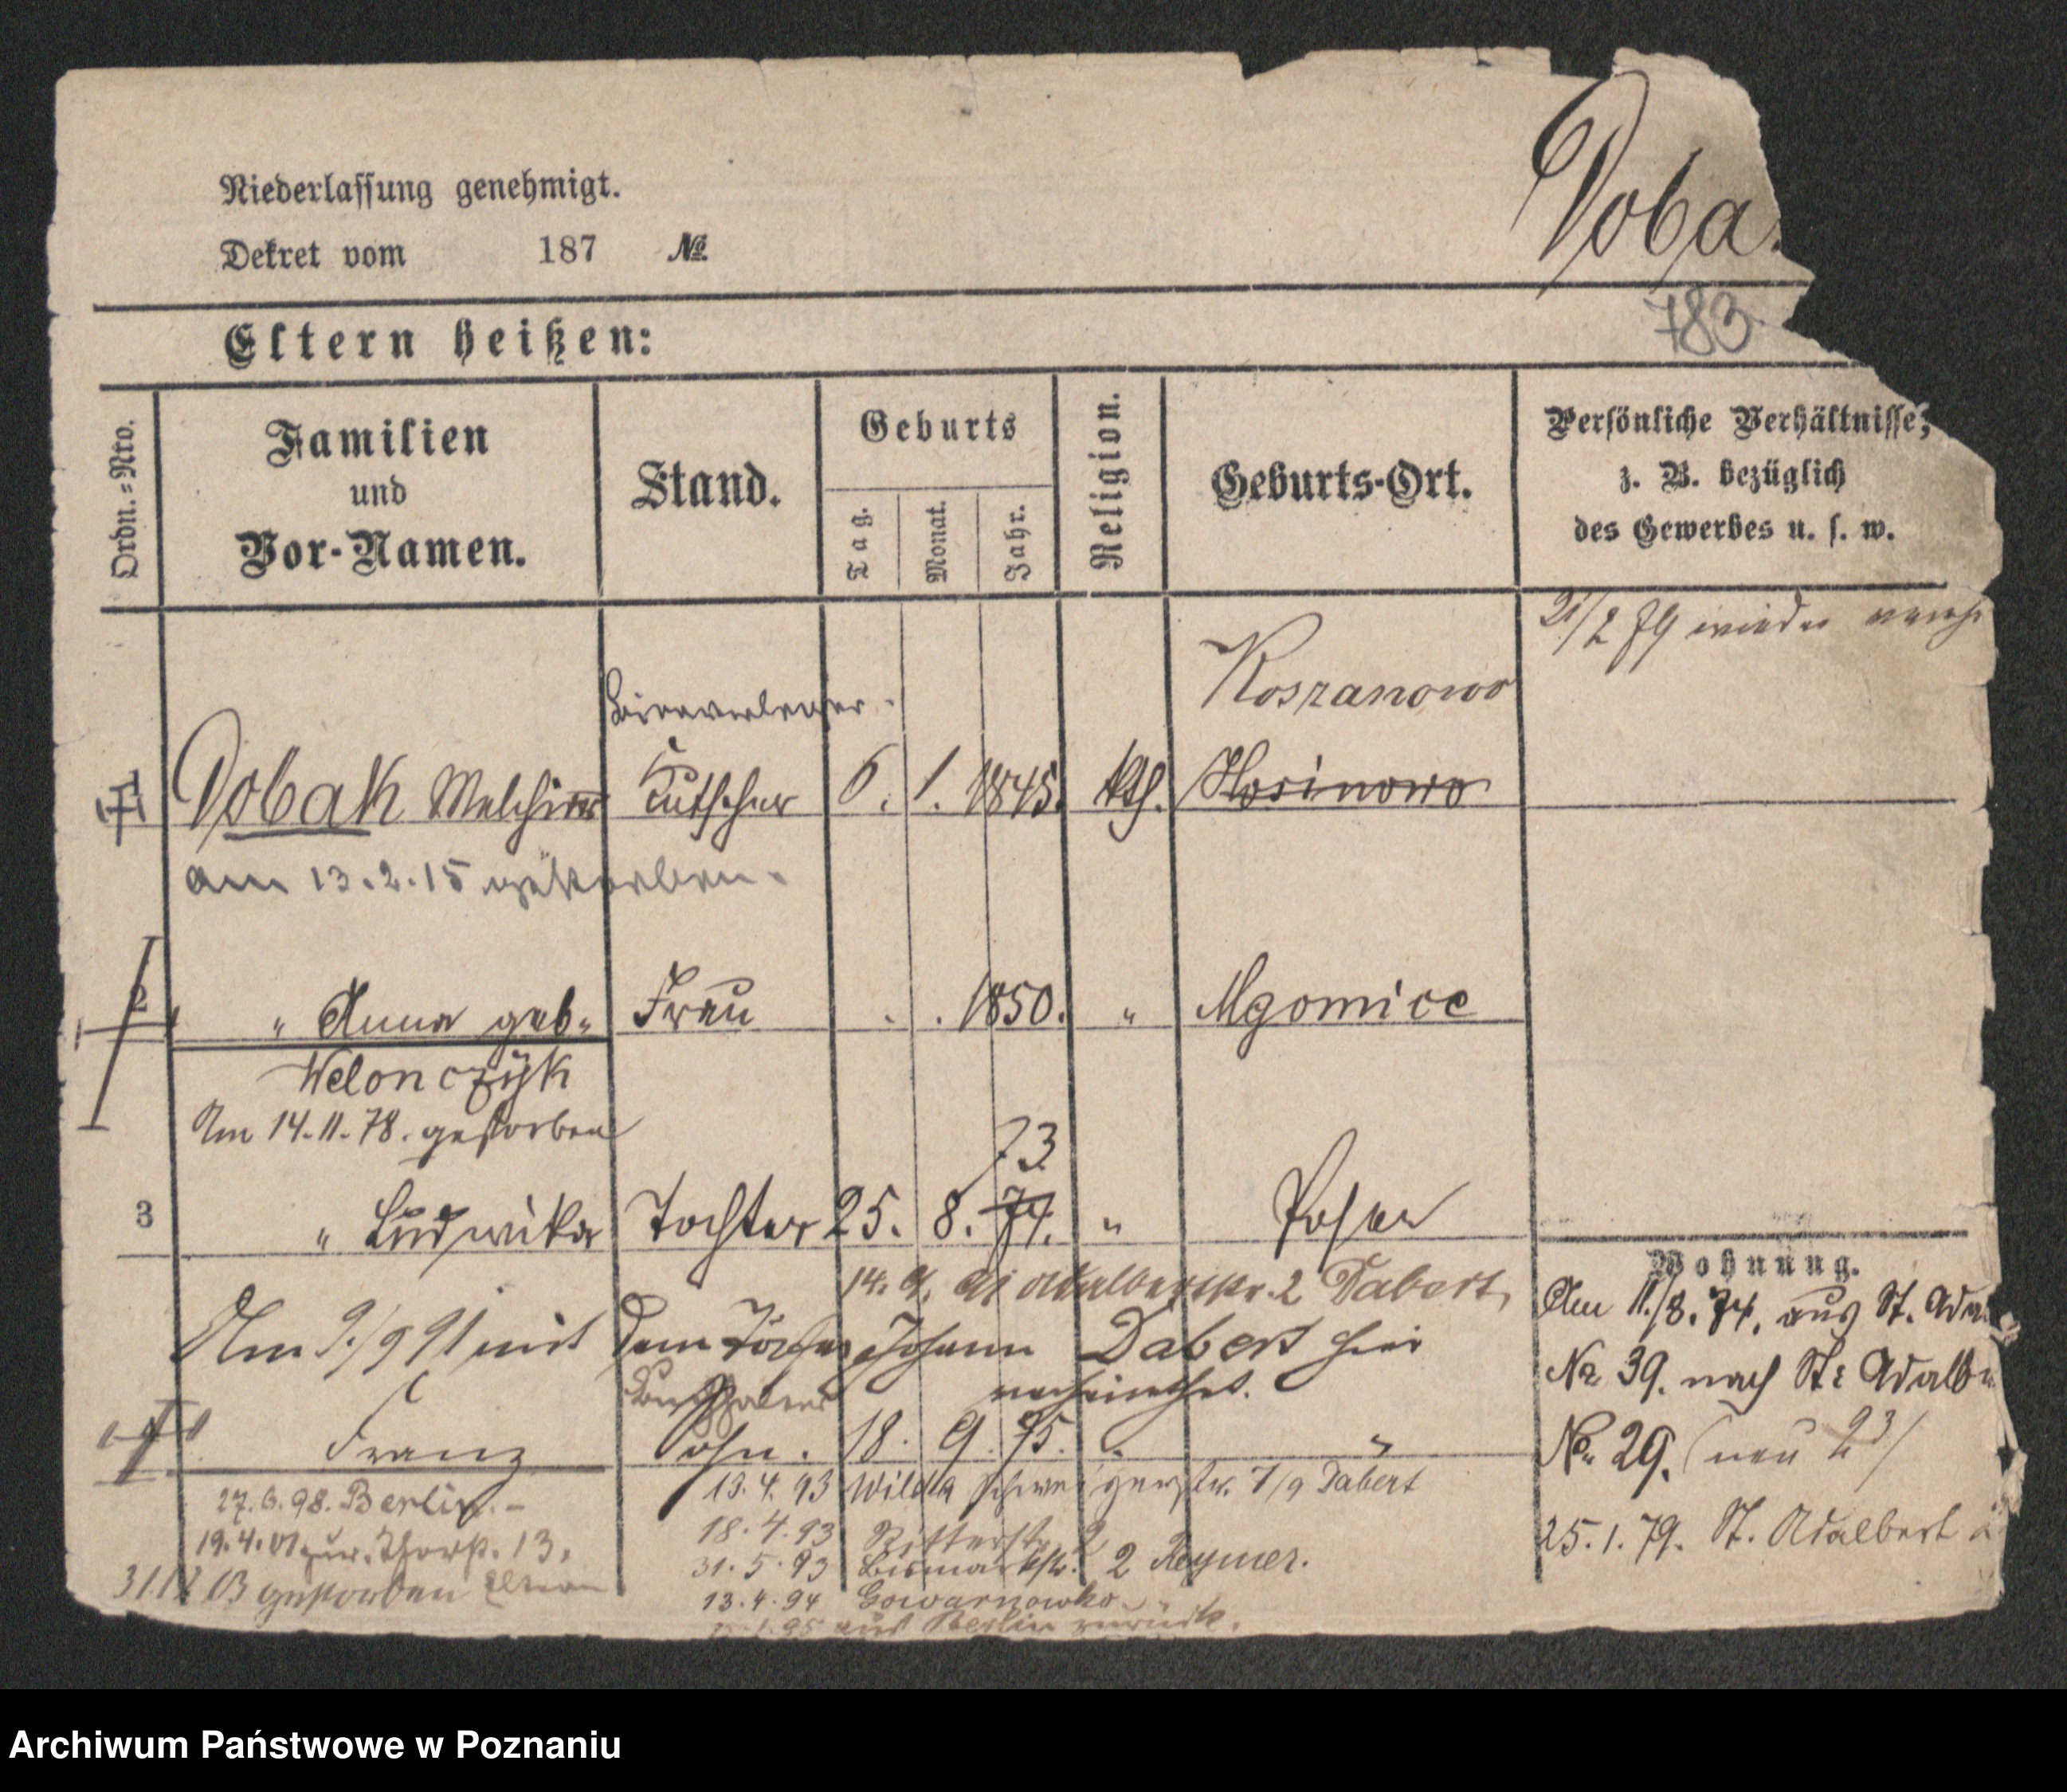 Doba
Niederlassung genehmigt.
Dekret vom 187 No
783
Eltern heißen:
Ordn.-Nro.
Familien
und
Vor-Namen.
Stand.
Geburts
Tag.
Monat.
Jahr.
Religion.
Geburts-Ort.
Persönliche Verhältnisse,
z. B. bezüglich
des Gewerbes u. s. w.
21/2 79 wieder
Bierverleger.
Koszanowo
1 Dobak Melchior Kutscher 6. 1. 1845. kth. Kosinowo
am 13.2.15 gestorben.
2 " Anna geb. Frau . . 1850. " Mgowice
Welonczyk
Am 14.11.78. gestorben
73
3 " Ludwika Tochter 25. 8. 74. " Posen
14. 9. 91 Adalbertstr. 2 Dabert
Am 9/9 91 mit dem Johann Dabert hier
verheirathet.
Franz Sohn. 18. 9. 75. " "
27.6.98. Berlin.
13.4.93 Wilda 7/9 Dabert
19.4.01 13.
18.4.93 Ritterstr. 2
31.5.93 Bismarkstr. 2 Reymer.
03 gestorben
13.4.94 Gowarnowko
95 aus Berlin zurück.
Wohnung.
Am 11./8. 74. aus St. Adal
No 39. nach St. Adalb
No 29. (neu 23)
25.1.79. St. Adalbert
Archiwum Państwowe w Poznaniu